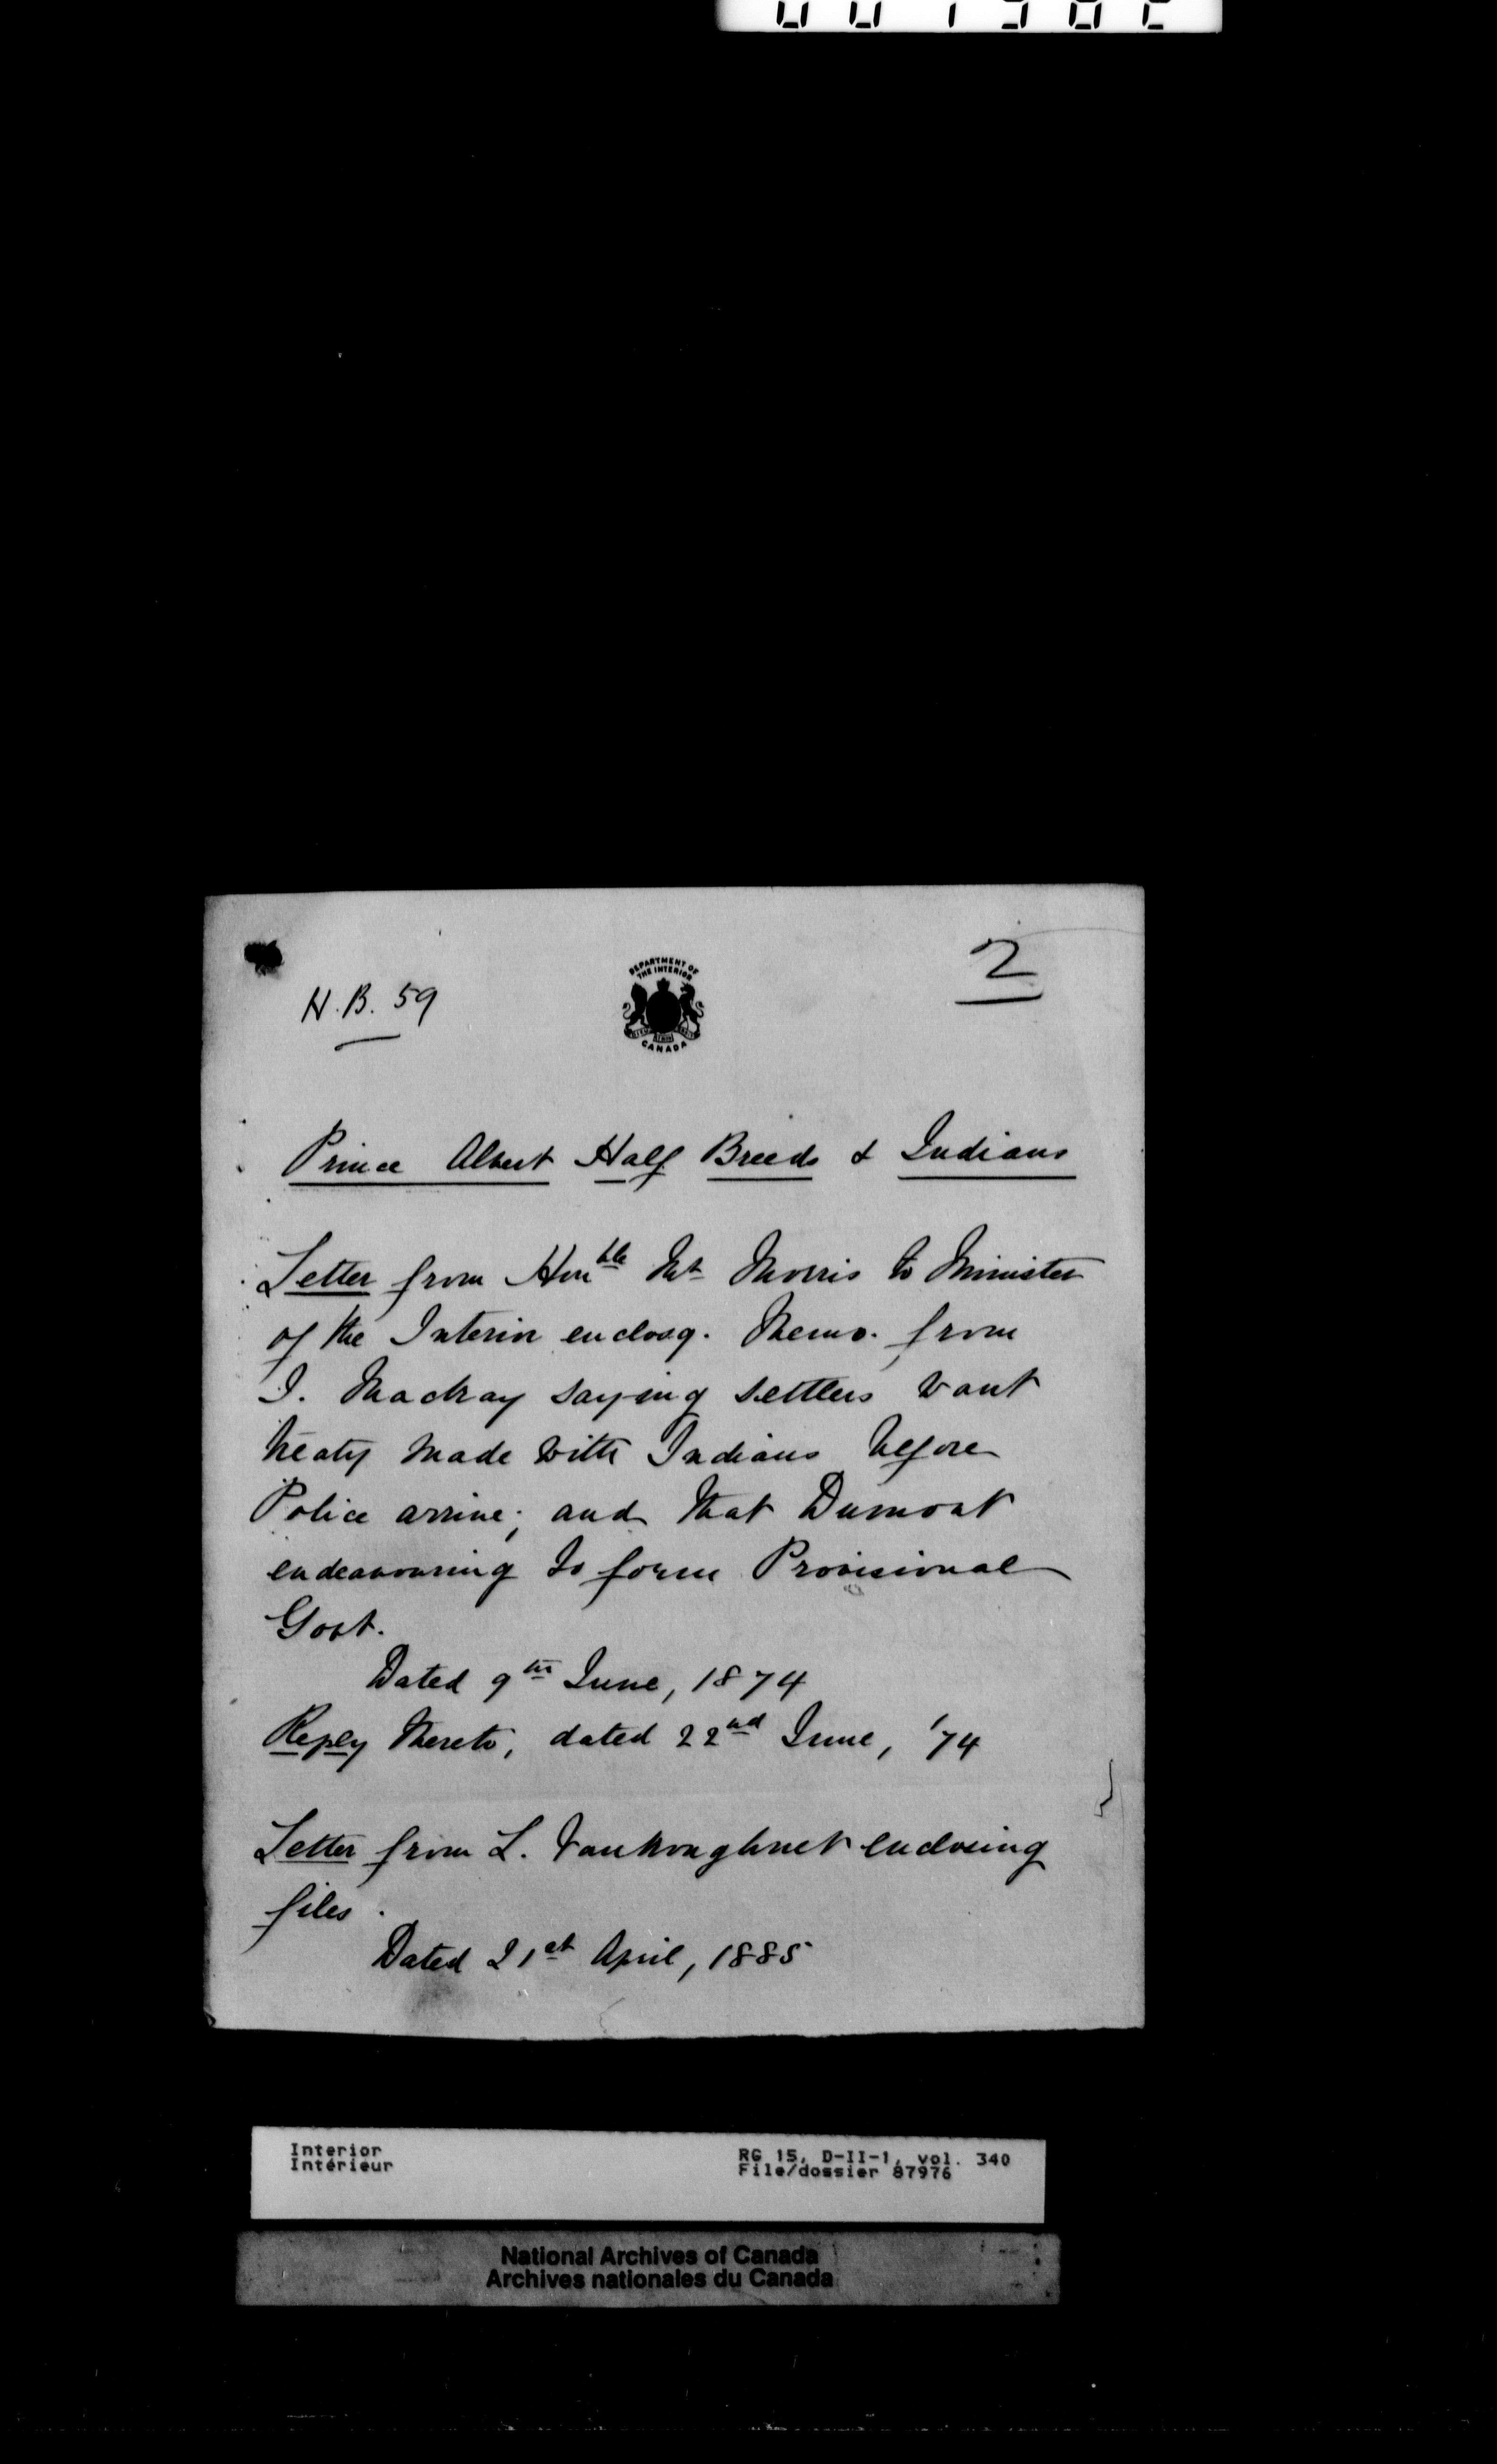 2
H.B. 59
DEPARTMENT OF
THE INTERIOR
CANADA
Prince Albert Half Breeds & Indians
Letter from Honble Mr Morris to Minister
of the Interior enclosg. Memo. from
J. Mackay saying settlers want
treaty made with Indians before
Police arrive; and that Dumont
endeavouring to form Provisional
Govt.
Dated 9th June, 1874
Reply thereto, dated 22nd June, '74
Letter from L. Vankoughnet enclosing
files.
Dated 21st April, 1885
Interior
Intérieur
RG 15, D-II-1, vol. 340
File/dossier 87976
National Archives of Canada
Archives nationales du Canada